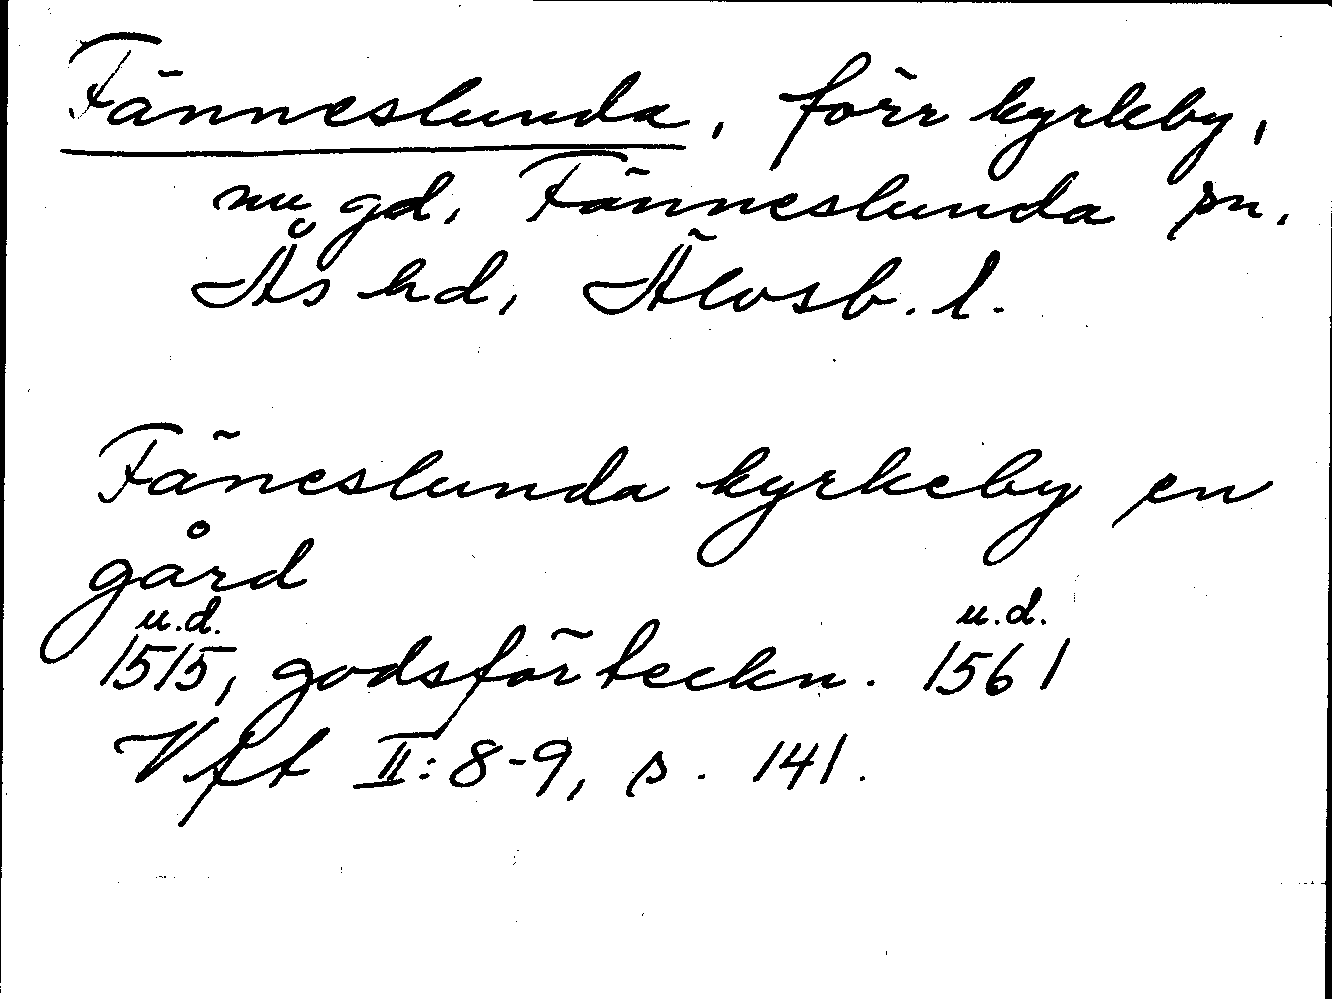 Fänneslunda, förr kyrkby,
nu gd, Fänneslunda sn,
Ås hd, Älvsb. l.
Fäneslunda kyrkeby en
gård
u.d. u.d.
1515, godsförteckn. 1561
Vft II: 8-9, s. 141.